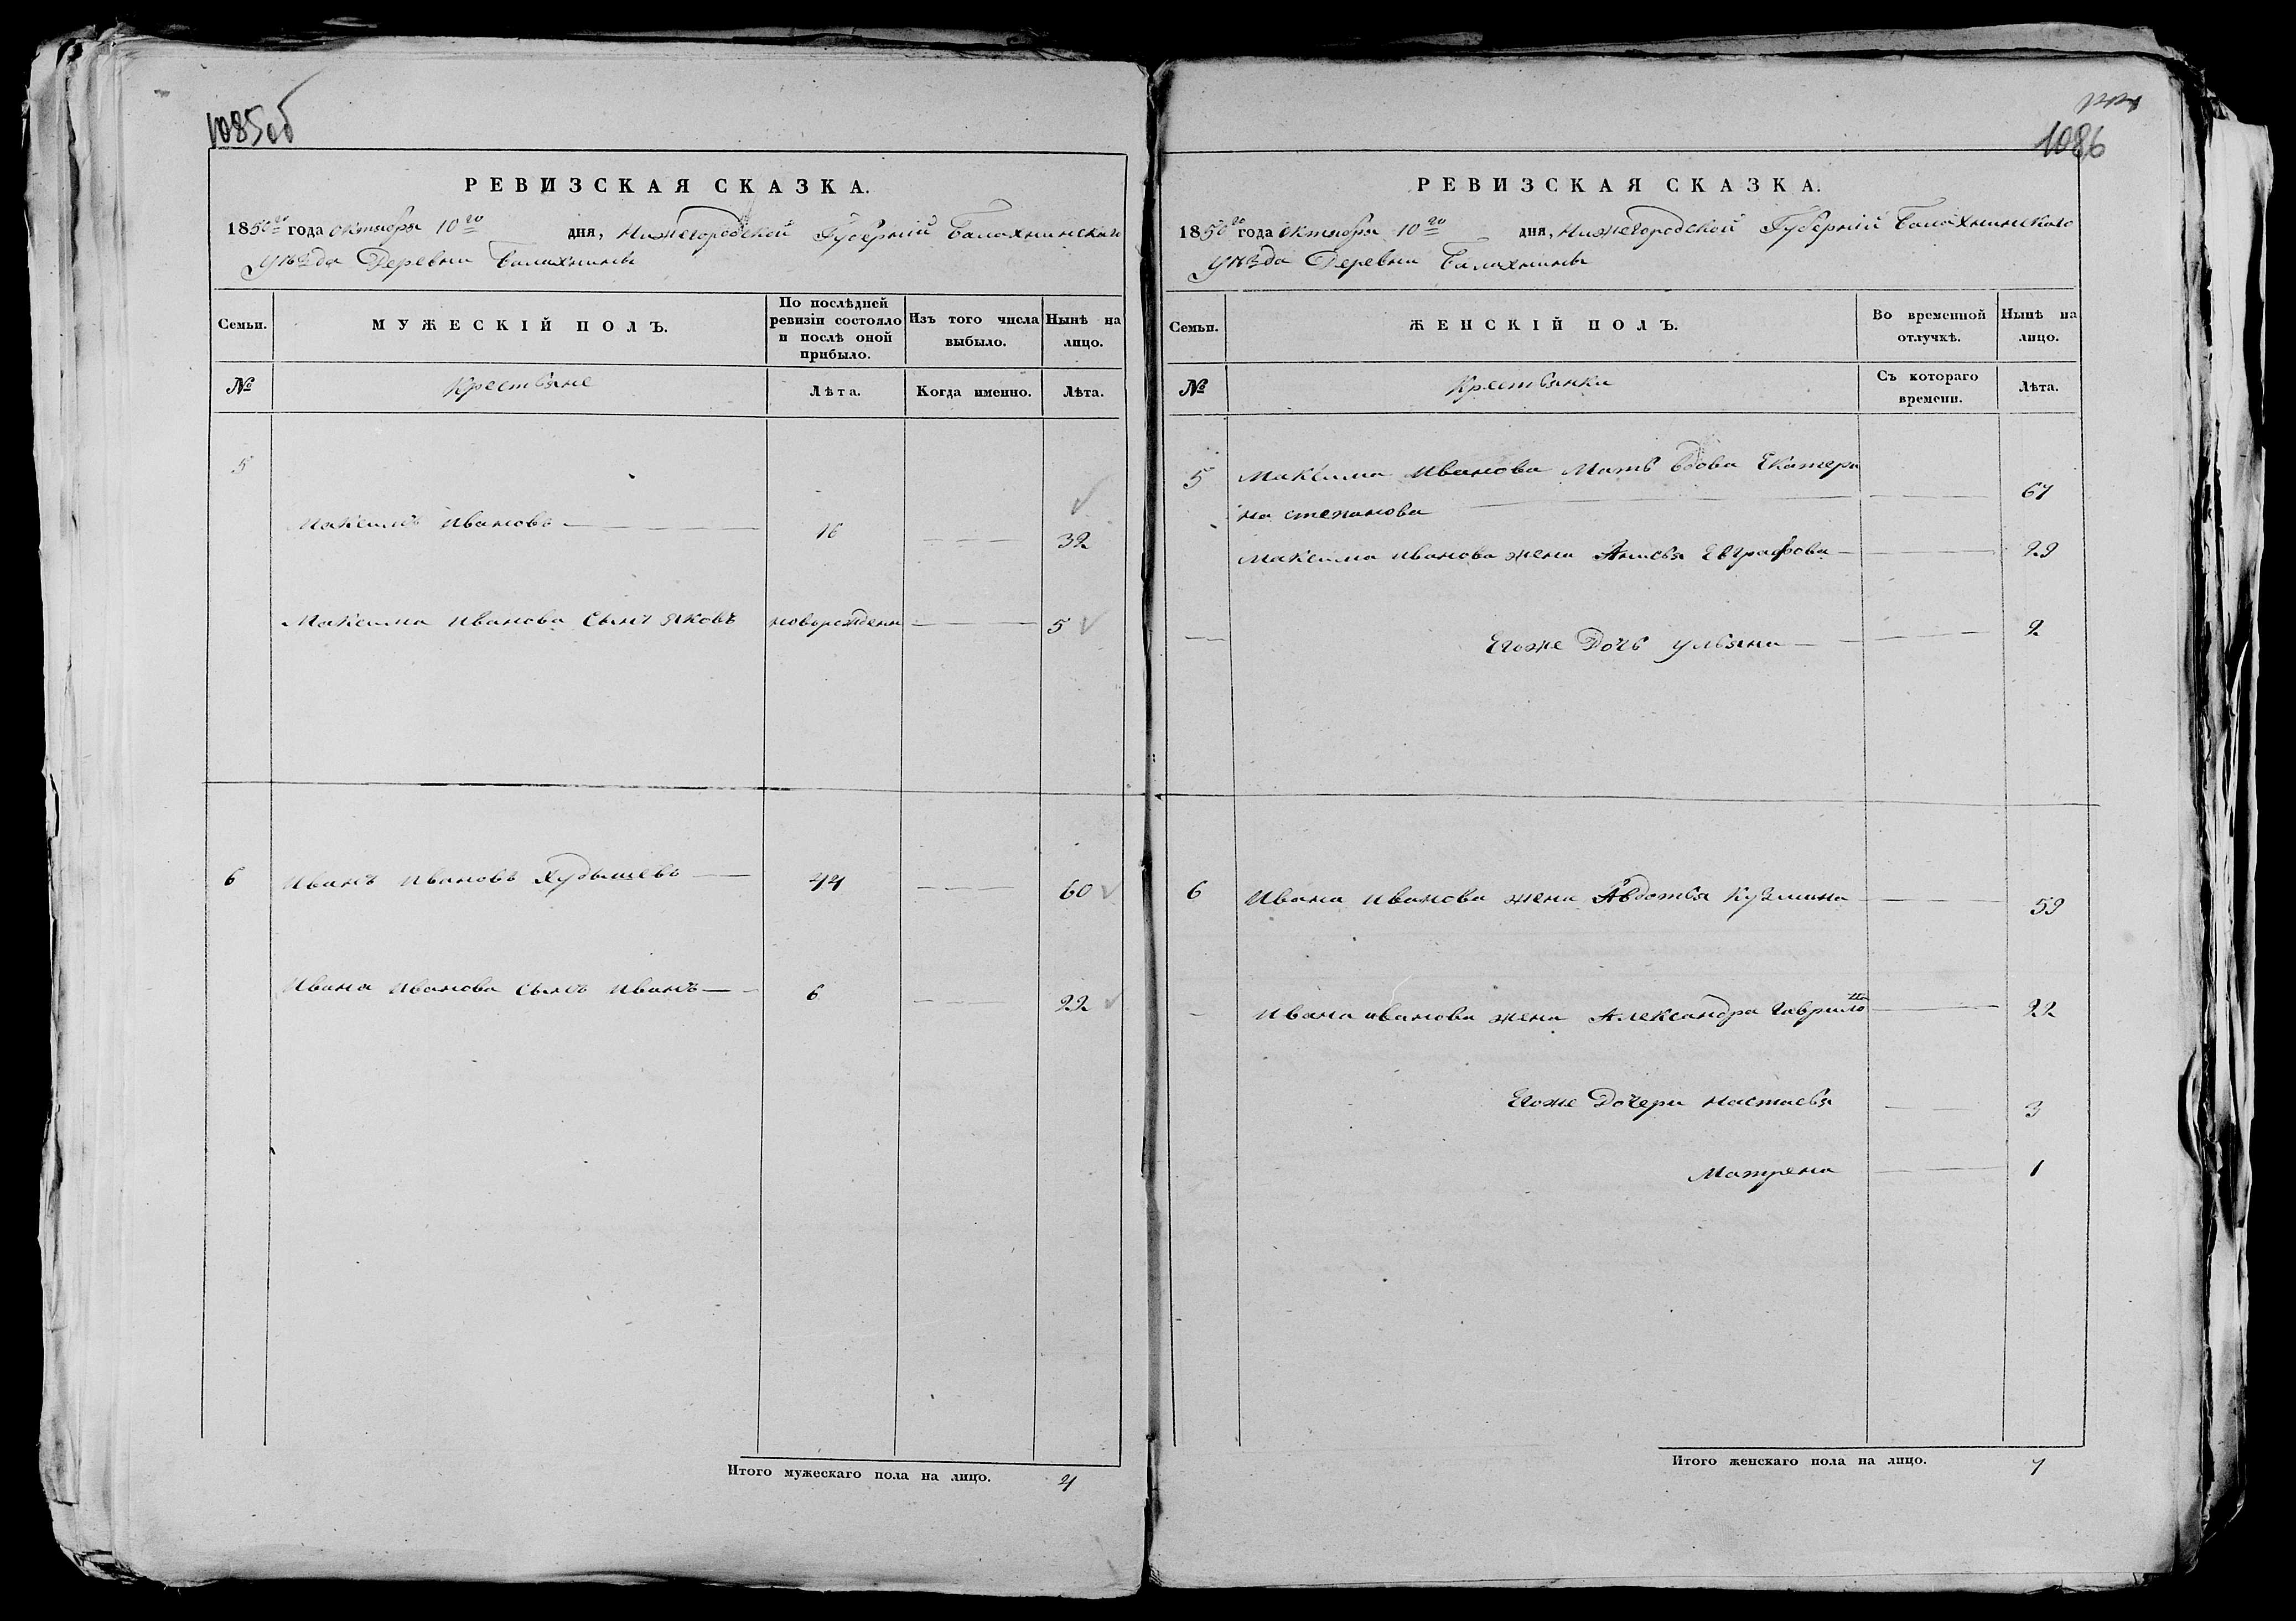 1085об
РЕВИЗСКАЯ СКАЗКА.
1850го года октября 10го дня, Нижегородской Губерніи Балахнинскаго
уѣзда Деревни
Семьи.
МУЖЕСКІЙ ПОЛЪ.
По послѣдней ревизіи состояло и послѣ оной прибыло.
Изъ того числа выбыло.
Нынѣ на лицо.
№
Крестьяне
Лѣта.
Когда именно.
Лѣта.
5
Максимъ Ивановъ 16 32
Максима Иванова сынъ Яковъ новорожден 5
6 Иванъ Ивановъ Худышевъ 44 60
Ивана Иванова сынъ Иванъ 6 22
Итого мужескаго пола на лицо. 4
1086
РЕВИЗСКАЯ СКАЗКА.
1850го года октября 10го дня, Нижегородской Губерніи Балахнинскаго
уѣзда Деревни
Семьи.
ЖЕНСКІЙ ПОЛЪ.
Во временной отлучкѣ.
Нынѣ на лицо.
№
Крестьянки
Съ котораго времени.
Лѣта.
5 Максима Иванова Мать вдова Екатери
на степанова 67
Максима Иванова жена Анисья Евграфова 29
Егоже Дочь ульяна 2
6 Ивана Иванова жена Авдотья Кузмина 59
Ивана иванова жена Александра Гаврило 22
Егоже Дочери настасья 3
Матрена 1
Итого женскаго пола на лицо. 7